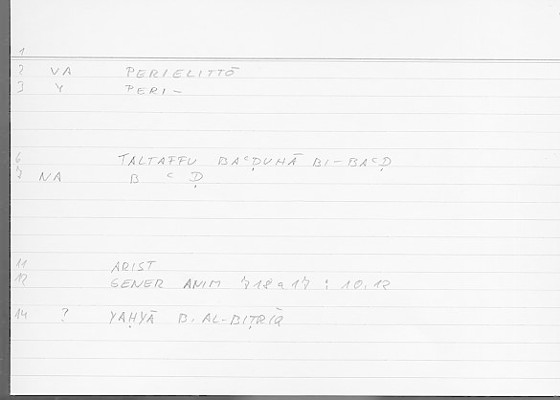 1
2 VA PERIELITTŌ
3 Y PERI-
6 TALTAFFU BAʿḌUHĀ BI-BAʿḌ
7 NA B ʿ Ḍ
11 ARIST
12 GENER ANIM 718a17 : 10.12
14 ? YAḤYĀ B. AL-BIṬRĪQ